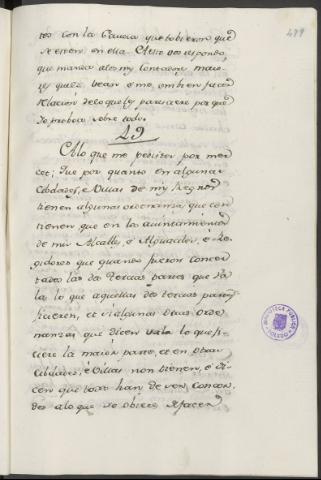 479
tos con la Causa que tobieron que
se esten en ella A esto vos respondo,
que mandar a los my Contadores maio-
res que lo vean e me embien facer
Relacion de lo que les paresciere por que
Yo probea sobre todo.
49
A lo que me pedistes por mer
ced; Que por quanto en algunas
Cibdades, e Villas de my Regnos
tienen algunas ordenanzas que con
tienen que en los aiuntamientos
de mis Alcalles, e Alguaciles, e Re-
gidores que quando fueren concer
tados las dos Tercias partes que va
la lo que aquellas dos tercias partes
ficieren, et en algunas otras orde
nanzas que dicen vala lo que fi-
ciere la maior parte, et en otras
Cibdades, e Villas non tienen, e di-
cen que todos han de ser concor-
des a lo que se obiere de facer
BIBLIOTECA PUBLICA
TOLEDO